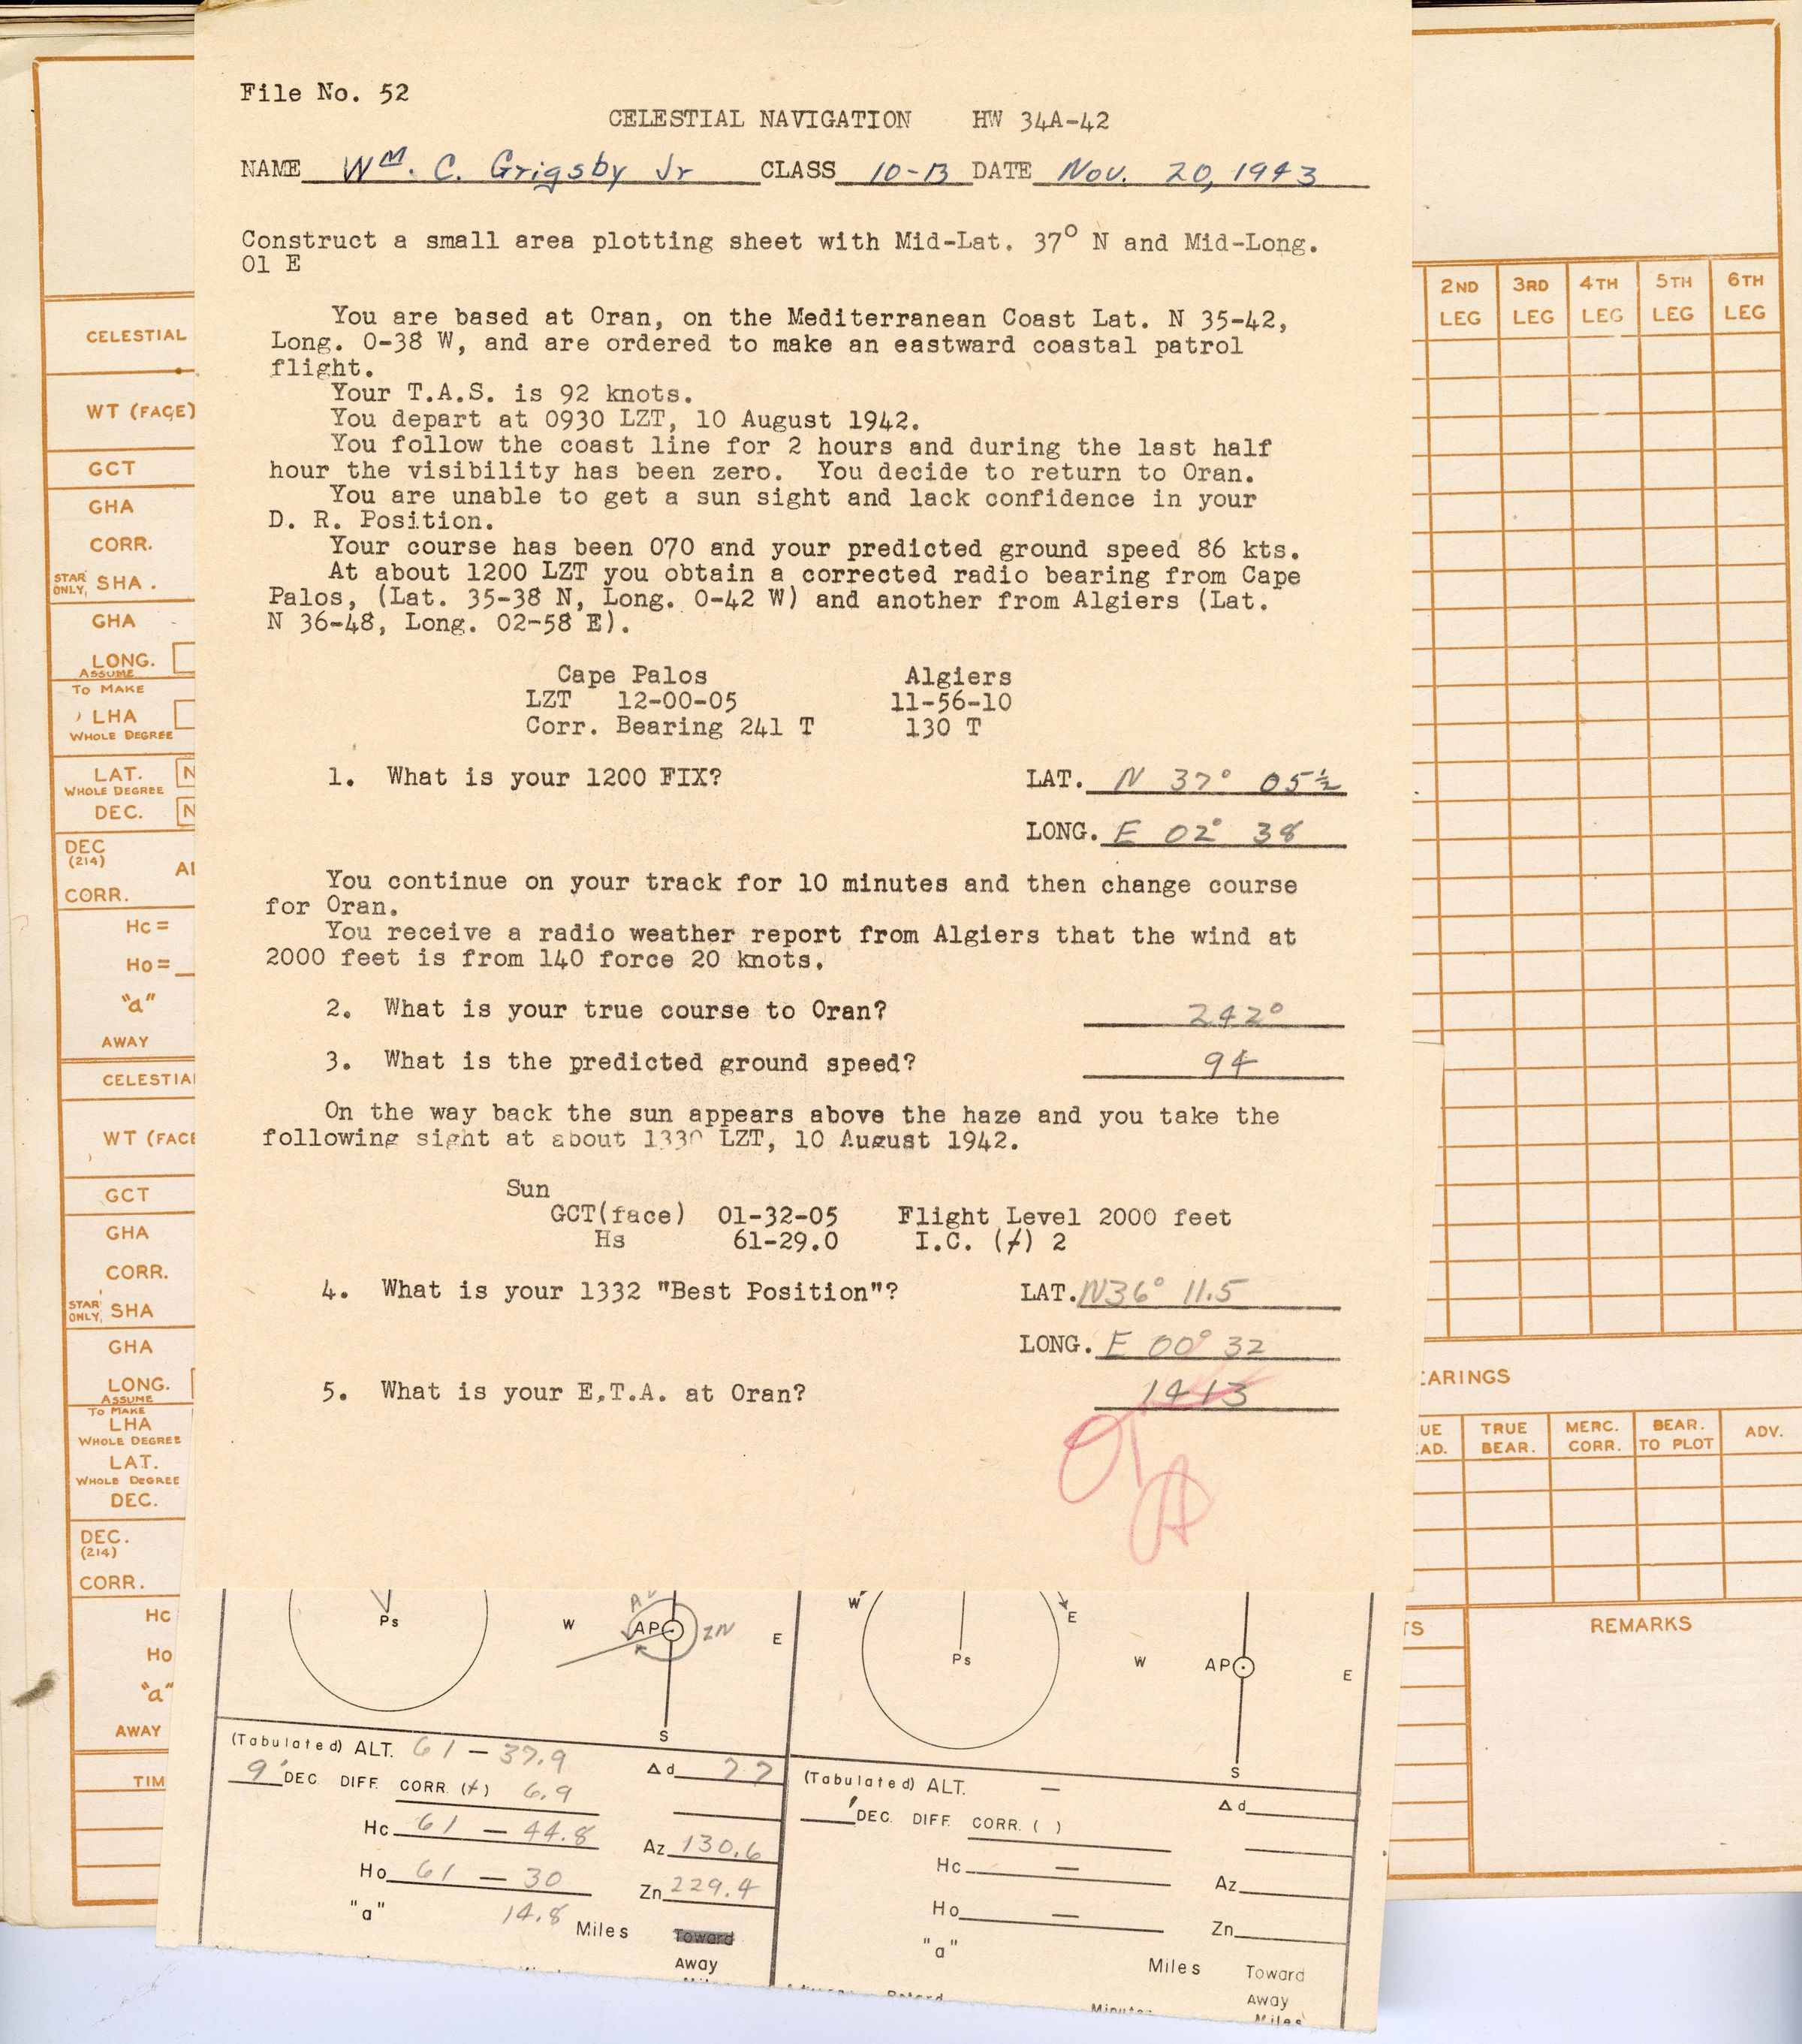 File No. 52
CELESTIAL NAVIGATION HW 34A-42
NAME Wm. C. Grigsby Jr CLASS 10-B DATE Nov. 20, 1943
Construct a small area plotting sheet with Mid-Lat. 37° N and Mid-Long.
01 E
You are based at Oran, on the Mediterranean Coast Lat. N 35-42,
Long. 0-38 W, and are ordered to make an eastward coastal patrol
flight.
Your T.A.S. is 92 knots.
You depart at 0930 LZT, 10 August 1942.
You follow the coast line for 2 hours and during the last half
hour the visibility has been zero. You decide to return to Oran.
You are unable to get a sun sight and lack confidence in your
D. R. Position.
Your course has been 070 and your predicted ground speed 86 kts.
At about 1200 LZT you obtain a corrected radio bearing from Cape
Palos, (Lat. 35-38 N, Long. 0-42 W) and another from Algiers (Lat.
N 36-48, Long. 02-58 E).
Cape Palos Algiers
LZT 12-00-05 11-56-10
Corr. Bearing 241 T 130 T
1. What is your 1200 FIX? LAT. N 37° 05½
LONG. E 02° 38
You continue on your track for 10 minutes and then change course
for Oran.
You receive a radio weather report from Algiers that the wind at
2000 feet is from 140 force 20 knots.
2. What is your true course to Oran? 242°
3. What is the predicted ground speed? 94
On the way back the sun appears above the haze and you take the
following sight at about 1330 LZT, 10 August 1942.
Sun
GCT(face) 01-32-05 Flight Level 2000 feet
Hs 61-29.0 I.C. (+) 2
4. What is your 1332 "Best Position"? LAT. N36° 11.5
LONG. E 00° 32
5. What is your E.T.A. at Oran? 1413
A
Ps W AP ZN E
S
(Tabulated) ALT. 61 - 37.9 Δd 77
9' DEC. DIFF. CORR. (+) 6.9
Hc 61 - 44.8 Az 130.6
Ho 61 - 30 Zn 229.4
"a" 14.8 Miles Toward
Away
Miles
W E
Ps W AP E
S
(Tabulated) ALT. -
Δd
' DEC. DIFF. CORR. ( )
Hc - Az
Ho - Zn
"a" Miles Toward
Away
Retard Minutes Miles
CELESTIAL
WT (FACE)
GCT
GHA
CORR.
STAR ONLY, SHA.
GHA
LONG.
ASSUME
TO MAKE
LHA
WHOLE DEGREE
LAT. N
WHOLE DEGREE
DEC. N
DEC
(214)
CORR.
Hc =
Ho =
"a"
AWAY
CELESTIAL
WT (FACE
GCT
GHA
CORR.
STAR ONLY, SHA
GHA
LONG.
ASSUME
TO MAKE
LHA
WHOLE DEGREE
LAT.
WHOLE DEGREE
DEC.
DEC.
(214)
CORR.
Hc
Ho
"a"
AWAY
TIM
2ND LEG 3RD LEG 4TH LEG 5TH LEG 6TH LEG
EARINGS
UE AD. TRUE BEAR. MERC. CORR. BEAR. TO PLOT ADV.
TS REMARKS